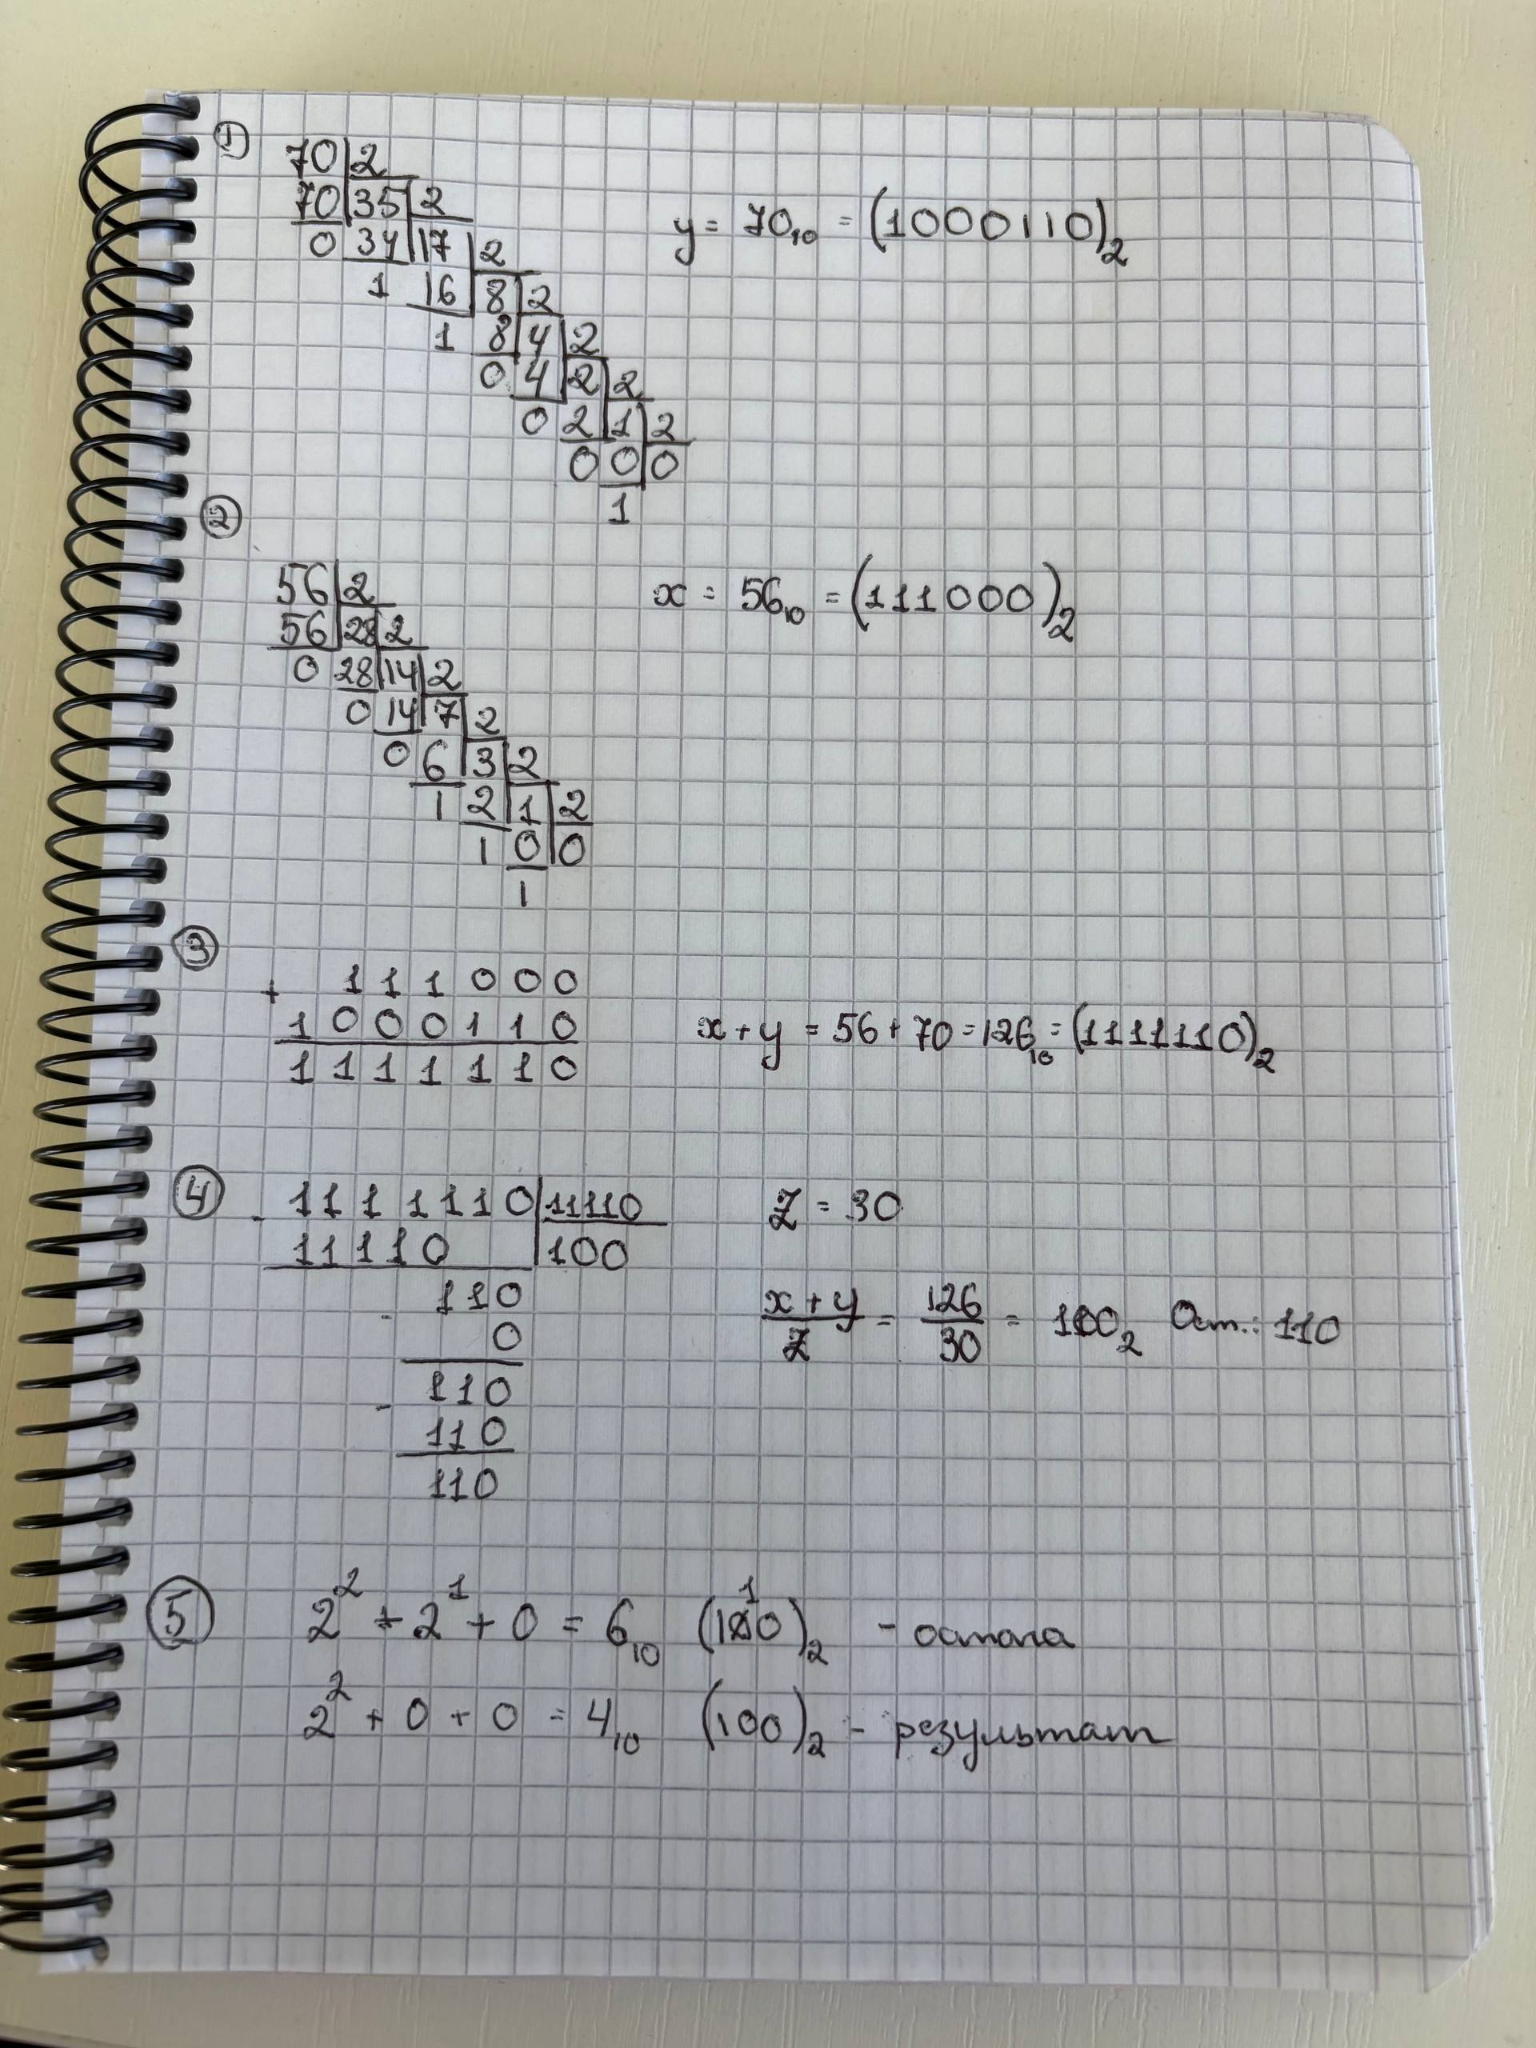 ①
70 2
70 35 2
0 34 17 2
1 16 8 2
1 8 4 2
0 4 2 2
0 2 1 2
0 0 0
1
y = 70₁₀ = (1000110)₂
②
56 2
56 28 2
0 28 14 2
0 14 7 2
0 6 3 2
1 2 1 2
1 0 0
1
x = 56₁₀ = (111000)₂
③
+ 111000
1000110
1111110
x + y = 56 + 70 = 126₁₀ = (1111110)₂
④
- 1111110 11110
11110 100
- 110
0
110
- 110
110
z = 30
(x + y)/z = 126/30 = 100₂ Ост.: 110
⑤
2² + 2¹ + 0 = 6₁₀ (110)₂ - остача
2² + 0 + 0 = 4₁₀ (100)₂ - результат